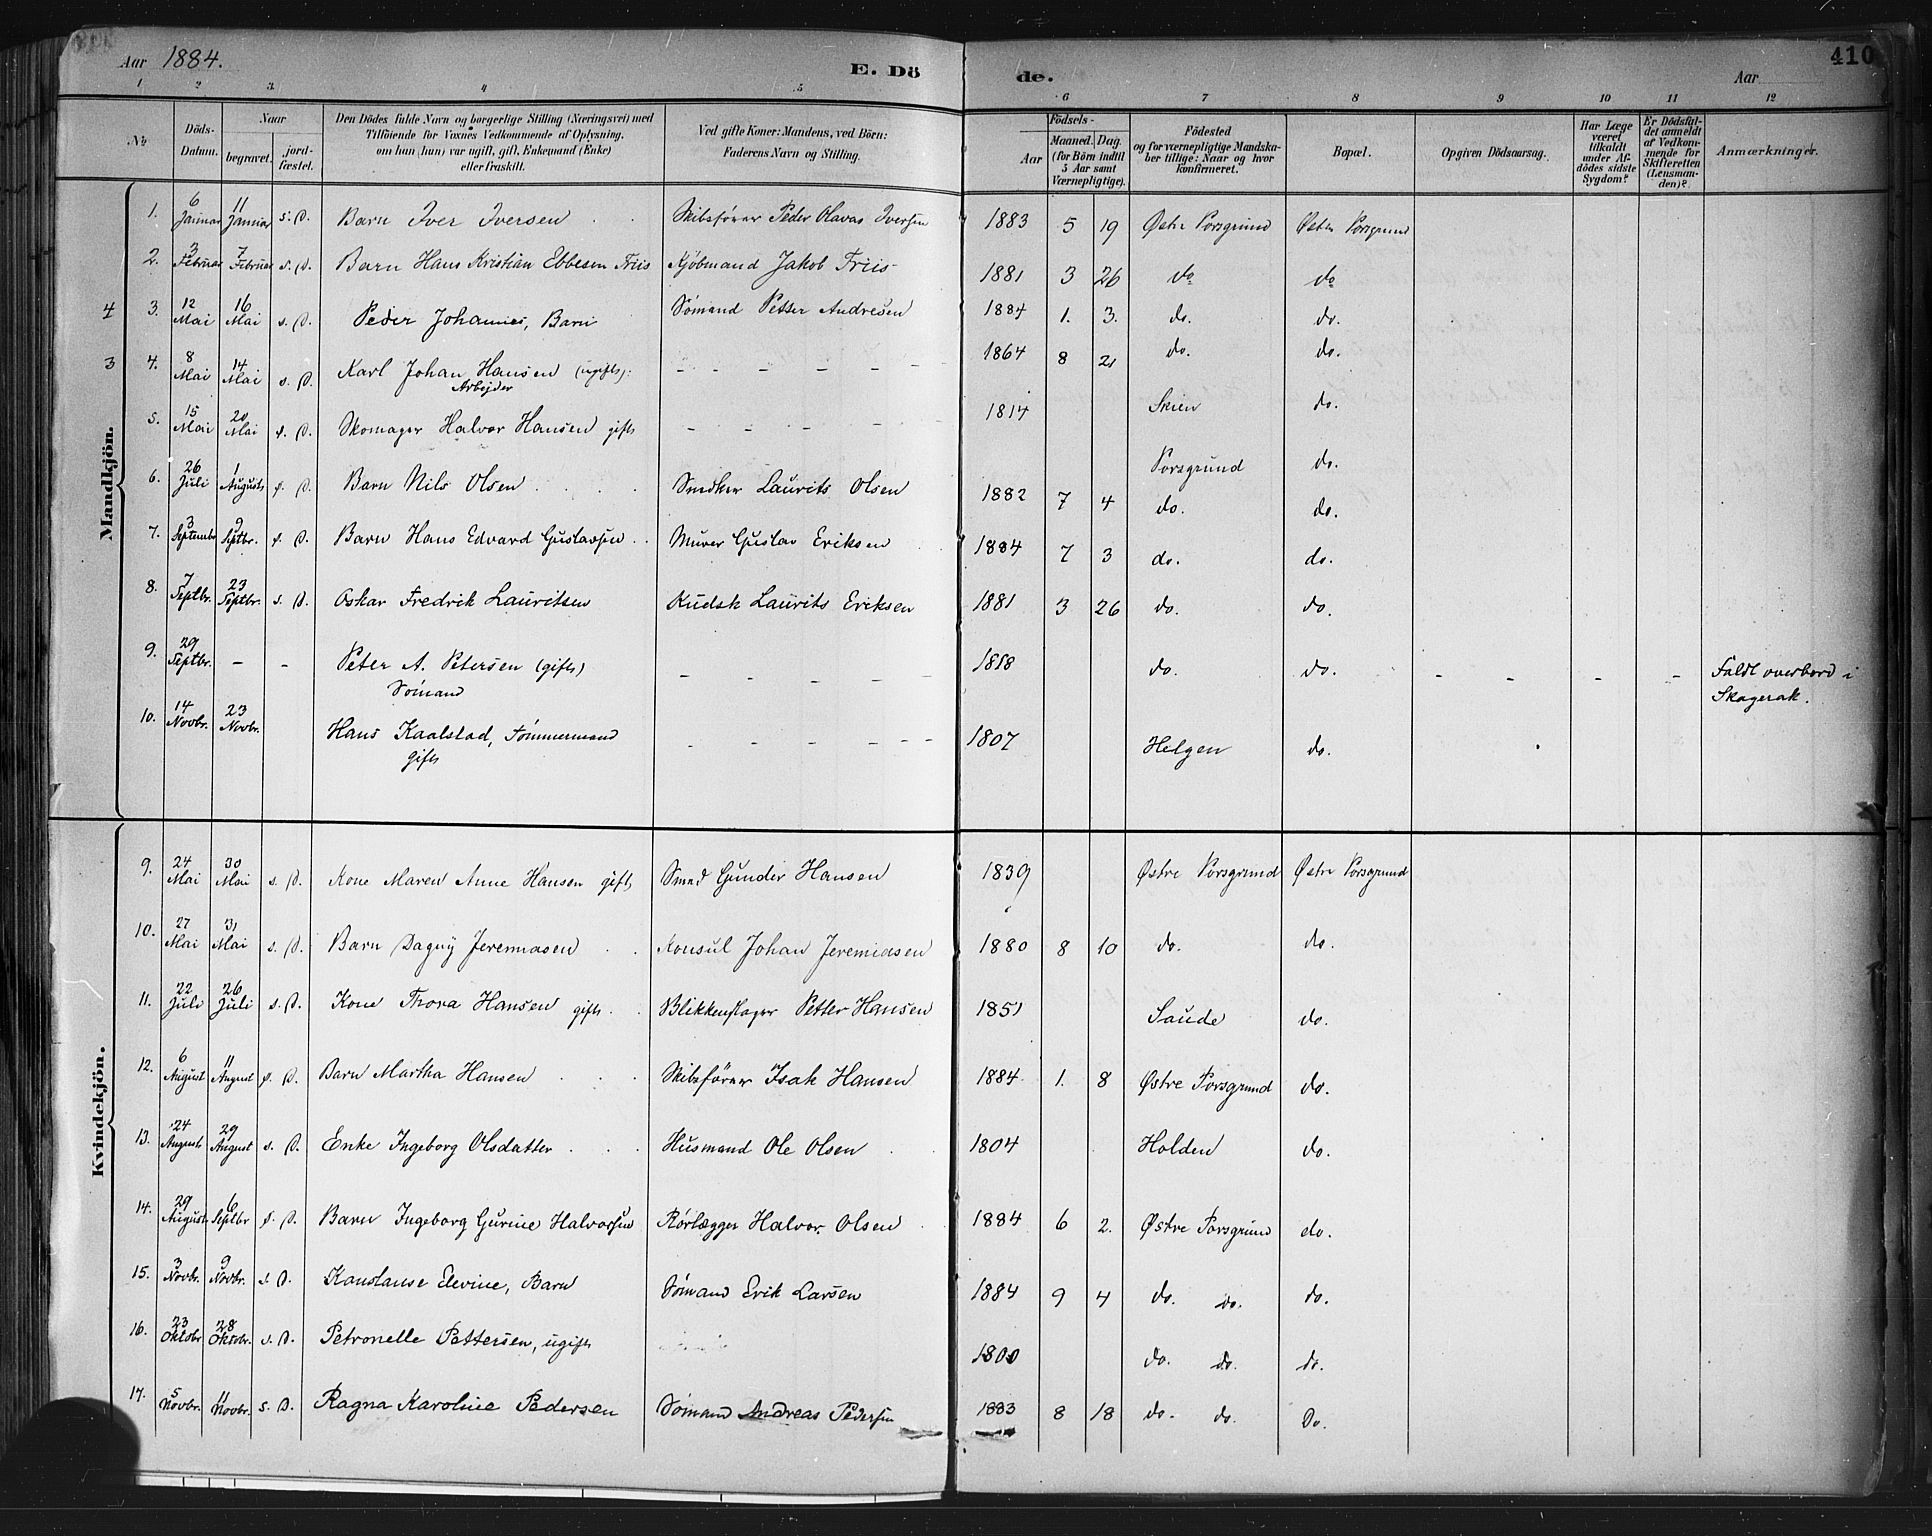 Aar 1884. E. Dö de. Aar 410
1 2 3. 4 5 6 7 8 9 10 11 12
No. Döds-Datum. Naar begravet. jord-fæstet. Den Dödes fulde Navn og borgerlige Stilling (Næringsvei) med Tilföiende for Voxnes Vedkommende af Oplysning, om han (hun) var ugift, gift, Enkemand (Enke) eller fraskilt. Ved gifte Koner: Mandens, ved Börn: Faderens Navn og Stilling. Födsels- Aar Maaned. Dag. (for Börn indtil 5 Aar samt Værnepligtige). Födested og for værnepligtige Mandskaber tillige: Naar og hvor konfirmeret. Bopæl. Opgiven Dödsaarsag. Har Læge været tilkaldt under Afdödes sidste Sygdom? Er Dödsfaldet anmeldt af Vedkommende for Skifteretten (Lensmanden)? Anmærkninger.
Mandkjön.
1. 6 Januar 11 Januar s. D. Barn Iver Iversen Skibsfører Peder Olavas Iversen 1883 5 19 Østre Porsgrund Østre Porsgrund
2. 3 Februar 7 Februar s. D. Barn Hans Kristian Ebbesen Friis Kjöbmand Jakob Friis 1881 3 26 do do
4 3. 12 Mai 16 Mai s. D. Peder Johannes, Barn Sømand Petter Andresen 1884 1. 3. do. do.
3 4. 8 Mai 14 Mai s. D. Karl Johan Hansen (ugift). – – – – – 1864 8 21 do. do.
Arbejder
5. 15 Mai 20 Mai s. D. Skomager Halvor Hansen gift – – – – – 1814 Skien do.
6. 26 Juli 1 August s. D. Barn Nils Olsen Snedker Laurits Olsen 1882 7 4 Porsgrund do. do. do.
7. 3 Septembr 9 Septbr. s. D. Barn Hans Edvard Gustavsen Murer Gustav Eriksen 1884 7 3 do. do.
8. 7 Septbr. 23 Septbr. s. D. Oskar Fredrik Lauritsen Kudsk Laurits Eriksen 1881 3 26 do. do.
9. 29 Septbr. – – Peter A. Petersen (gift) – – – – – 1818 do. do. – – – – Faldt overbord i
Sømand Skagerak.
10. 14 Novbr. 23 Novbr. Hans Kaalstad, Tømmermand – – – – – – 1807 Helgen do.
gift
Kvindekjön.
9. 24 Mai 30 Mai s. D. Kone Maren Anne Hansen gift Smed Gunder Hansen 1839 Østre Porsgrund Østre Porsgrund
10. 27 Mai 31 Mai s. D. Barn Dagny Jeremiasen Konsul Johan Jeremiasen 1880 8 10 do. do.
11. 22 Juli 26 Juli s. D. Kone Thora Hansen gift. Blikkenslager Petter Hansen 1851 Saude do.
12. 6 August 11 August s. D. Barn Martha Hansen Skibsfører Isak Hansen 1884 1. 8 Østre Porsgrund do.
13. 24 August 29 August s. D. Enke Ingeborg Olsdatter Husmand Ole Olsen 1804 Holden do.
14. 29 August 6 Septbr s. D. Barn Ingeborg Gurine Halvorsen Rørlægger Halvor Olsen 1884 6 2. Østre Porsgrund do.
15. 3 Novbr. 9 Novbr. s. D. Konstanse Elevine, Barn Sømand Erik Larsen 1884 9 4 do. do. do.
16. 23 Oktobr 28 Oktobr. s. D. Petronelle Pettersen, ugift 1800 do. do. do.
17. 5 Novbr. 11 Novbr. s. D. Ragna Karoline Pedersen Sømand Andreas Pedersen 1883 8 18 do. do. Do.